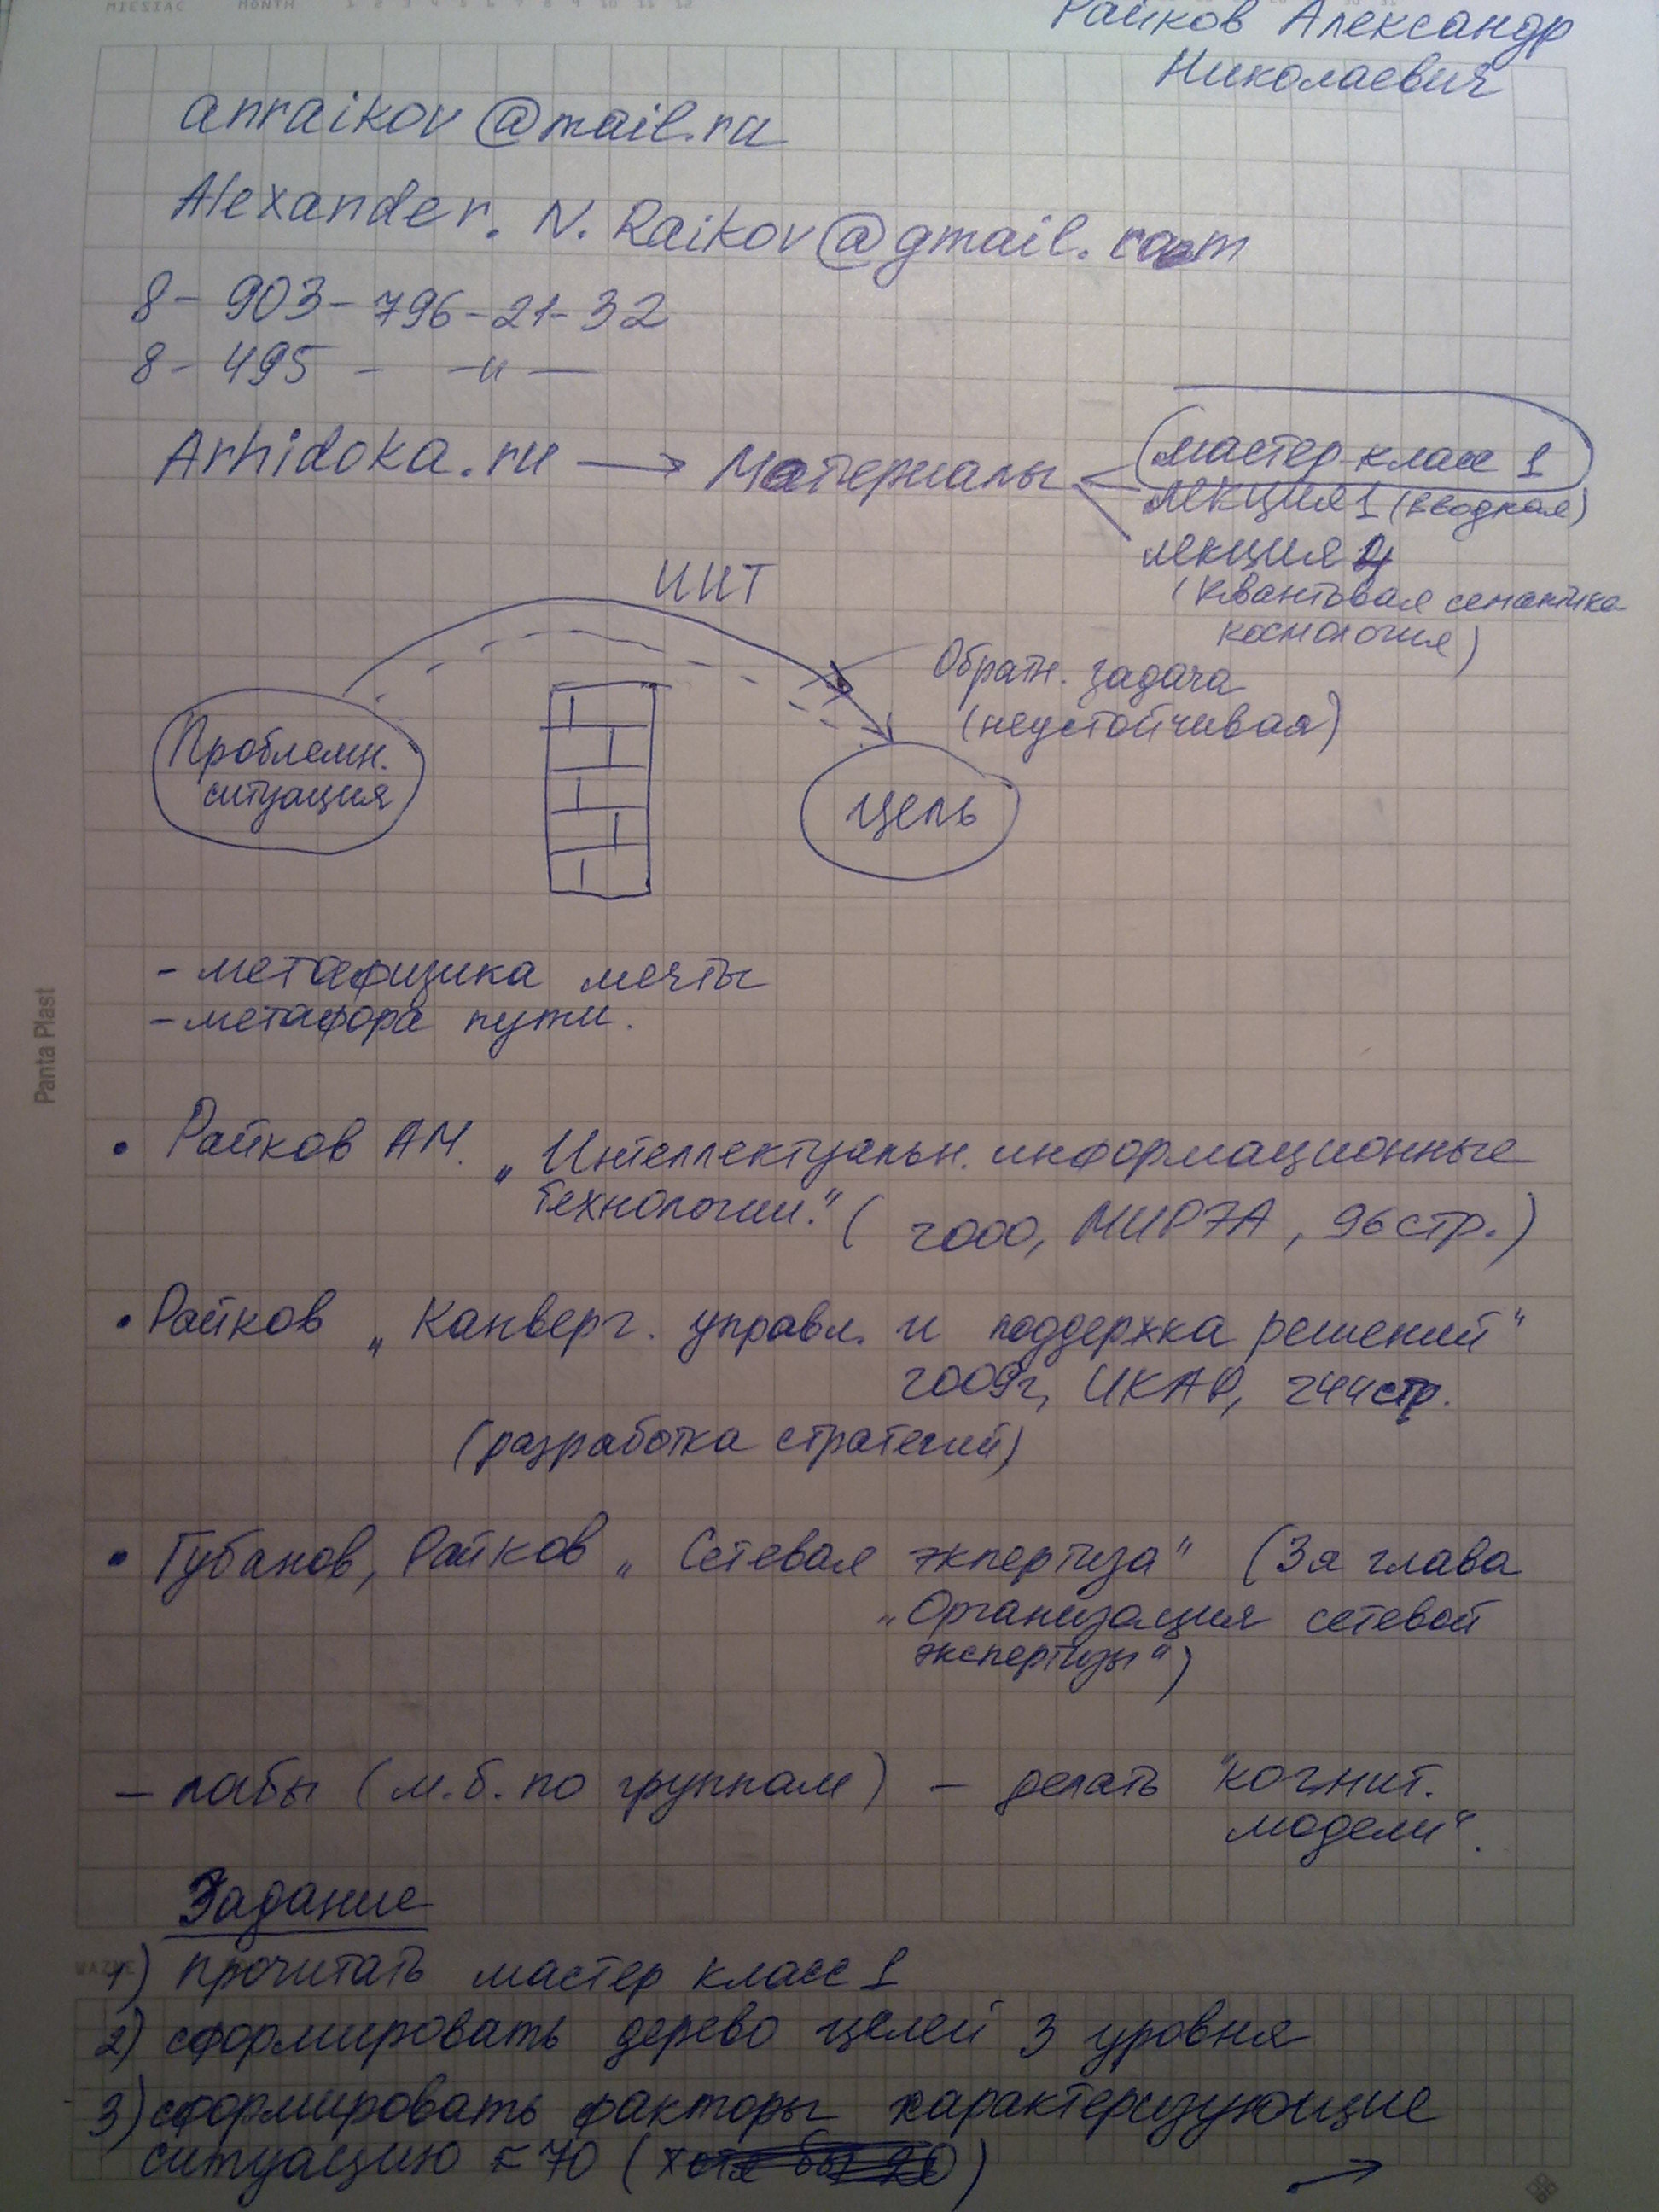 MIESIĄC MONTH 1 2 3 4 5 6 7 8 9 10 11 12
Райков Александр
Николаевич
anraikov@mail.ru
Alexander.N.Raikov@gmail.com
8-903-796-21-32
8-495 - -"-
Arhidoka.ru → Материалы
мастер-класс 1
лекция 1 (вводная)
лекция 4
(квантовая семантика
космология)
ИИТ
Обратн. задача
(неустойчивая)
Проблемн.
ситуация
цель
- метафизика мечты
- метафора пути.
Panta Plast
• Райков А.Н. „Интеллектуальн. информационные
технологии." (2000, МИРЭА, 96 стр.)
• Райков „Конверг. управл. и поддержка решений"
2009г, ИКАР, 244стр.
(разработка стратегий)
• Губанов, Райков „Сетевая экпертиза" (3я глава
„Организация сетевой
экспертизы")
- лабы (м.б. по группам) - делать "когнит.
модели".
Задание
1) прочитать мастер класс 1
2) сформировать дерево целей 3 уровня
3) сформировать факторы характеризующие
ситуацию ≈ 70 (хотя бы 20)
→